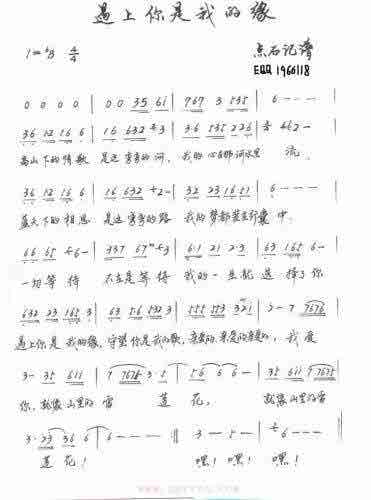 遇上你是我的缘
1=♭B 4/4
点石记谱
EQQ 1966118
0 0 0 0 | 0 0 35 61 | 767 3 535 | 6 - - - |
36 12 16 6 | 16 632 - 3 | 3·6 535 226 | 462 -
高山下的情歌 是这弯弯的河 我的心在那河水里 流
36 12 16 6 | 16 632 +2 - | 32 23 16 51 | 6 - - - |
蓝天下的相思 是这弯弯的路 我的梦都装在行囊中
66 65 +6 - | 337 67 +3 | 6·1 21 2·3 | 63 165 6 -
一切等待 不在是等待 我的一生就选择了你
632 23 165 3 | 63 56 532 3 | 555 553 321 | 2 - 7 7676 |
遇上你是我的缘,守望你是我的歌,亲爱的,亲爱的亲爱的,我爱
3 - 35 611 | 7 7676 3·5 | 56 6 6 - | 35 611 7 7675
你,就像山里的雪莲花, 就像山里的雪
3·23 36 6 | 6 - - - ‖ 3 - 5 - | 6 - - - |
莲花! 嘿! 嘿! 嘿!